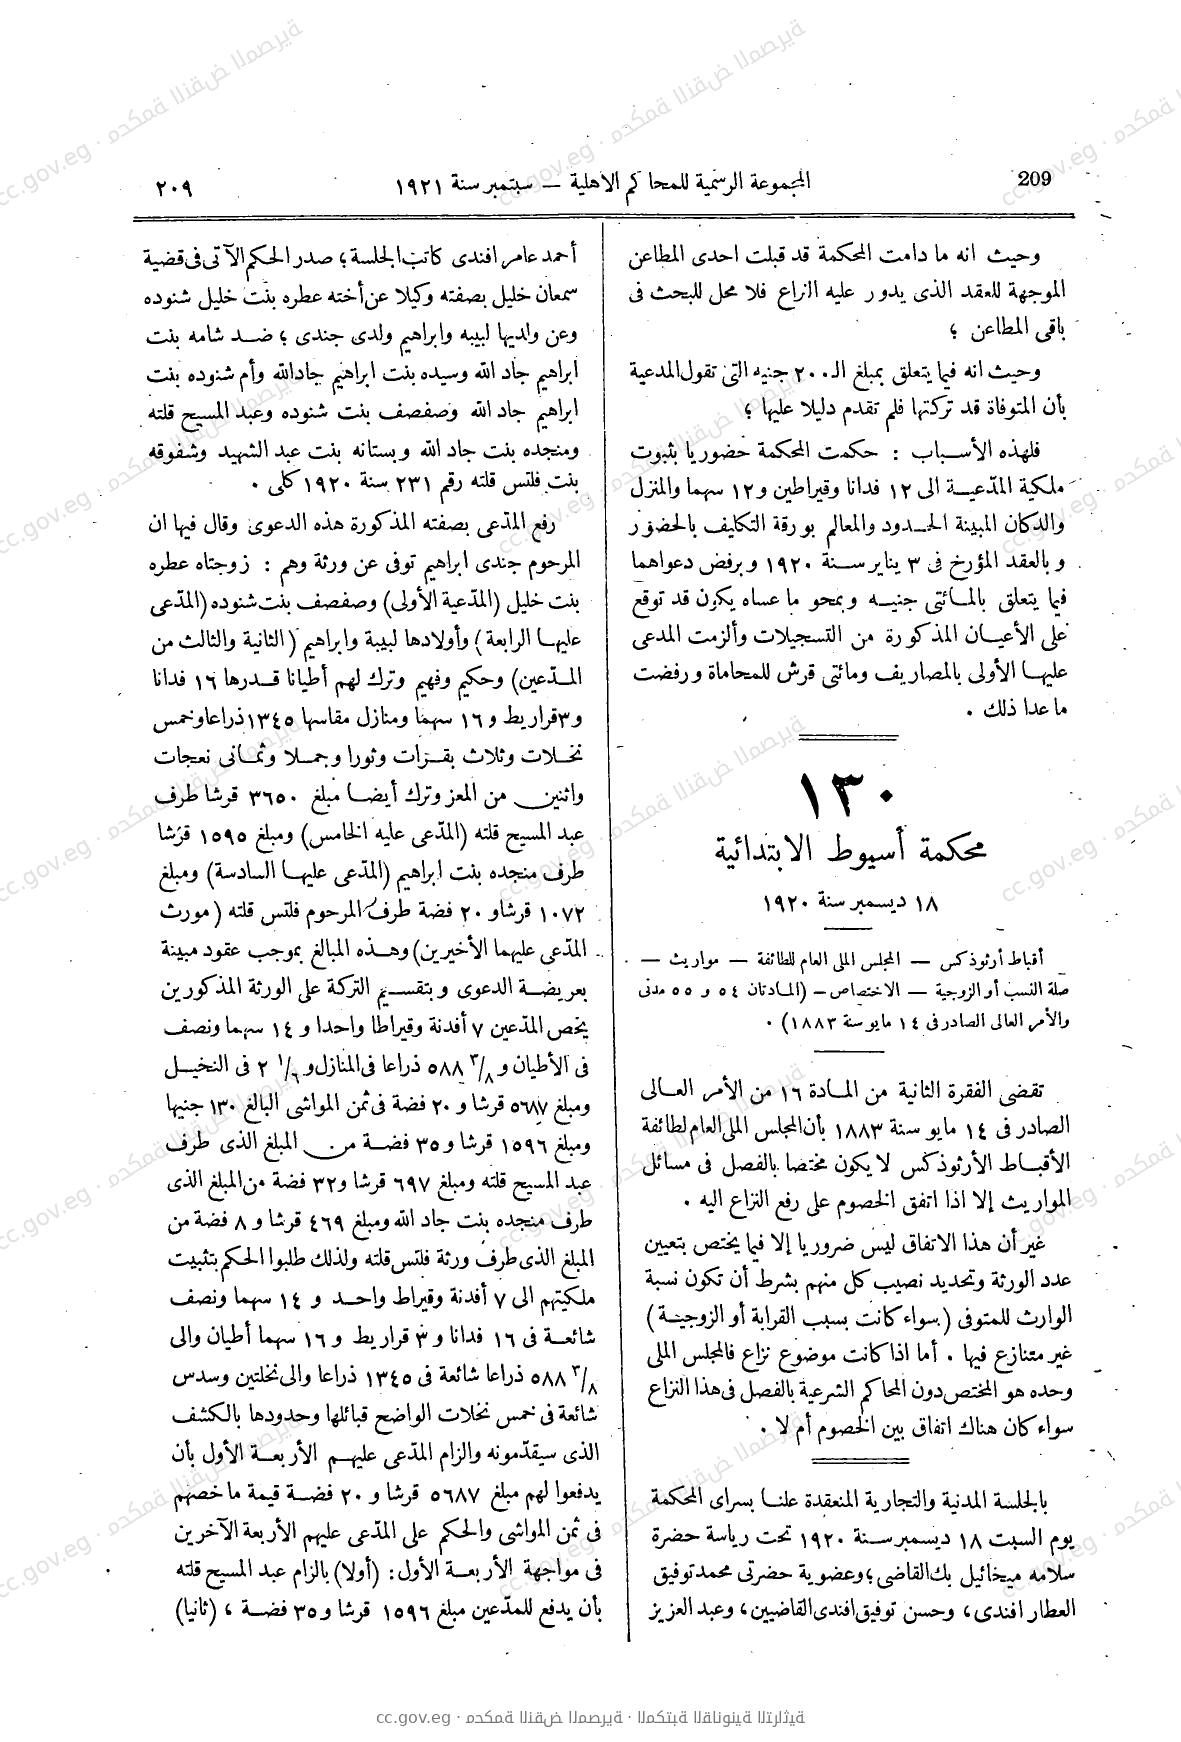 209
المجموعة الرسمية للمحاكم الاهلية — سبتمبر سنة ١٩٢١
٢٠٩
وحيث انه ما دامت المحكمة قد قبلت احدى المطاعن
الموجهة للعقد الذى يدور عليه النزاع فلا محل للبحث فى
باقى المطاعن ؛
وحيث انه فيما يتعلق بمبلغ الـ٢٠٠ جنيه التى تقول المدعية
بأن المتوفاة قد تركتها فلم تقدم دليلا عليها ؛
فلهذه الأسباب : حكمت المحكمة حضوريا بثبوت
ملكية المدّعية الى ١٢ فدانا وقيراطين و١٢ سهما والمنزل
والدكان المبينة الحدود والمعالم بورقة التكليف بالحضور
وبالعقد المؤرخ فى ٣ يناير سنة ١٩٢٠ وبرفض دعواهما
فيما يتعلق بالمائتى جنيه وبمحو ما عساه يكون قد توقع
على الأعيان المذكورة من التسجيلات وألزمت المدعى
عليها الأولى بالمصاريف ومائتى قرش للمحاماة ورفضت
ما عدا ذلك .
١٣٠
محكمة أسيوط الابتدائية
١٨ ديسمبر سنة ١٩٢٠
أقباط أرثوذكس — المجلس الملى العام للطائفة — مواريث —
صلة النسب أو الزوجية — الاختصاص — (المادتان ٥٤ و ٥٥ مدنى
والأمر العالى الصادر فى ١٤ مايو سنة ١٨٨٣) .
تقضى الفقرة الثانية من المادة ١٦ من الأمر العالى
الصادر فى ١٤ مايو سنة ١٨٨٣ بأن المجلس الملى العام لطائفة
الأقباط الأرثوذكس لا يكون مختصا بالفصل فى مسائل
المواريث إلا اذا اتفق الخصوم على رفع النزاع اليه .
غير أن هذا الاتفاق ليس ضروريا إلا فيما يختص بتعيين
عدد الورثة وتحديد نصيب كل منهم بشرط أن تكون نسبة
الوارث للمتوفى (سواء كانت بسبب القرابة أو الزوجية)
غير متنازع فيها . أما اذا كانت موضوع نزاع فالمجلس الملى
وحده هو المختص دون المحاكم الشرعية بالفصل فى هذا النزاع
سواء كان هناك اتفاق بين الخصوم أم لا .
بالجلسة المدنية والتجارية المنعقدة علنا بسراى المحكمة
يوم السبت ١٨ ديسمبر سنة ١٩٢٠ تحت رياسة حضرة
سلامه ميخائيل بك القاضى ؛ وعضوية حضرتى محمد توفيق
العطار افندى، وحسن توفيق افندى القاضيين، وعبد العزيز
أحمد عامر افندى كاتب الجلسة ؛ صدر الحكم الآتى فى قضية
سمعان خليل بصفته وكيلا عن أخته عطره بنت خليل شنوده
وعن ولديها لبيبه وابراهيم ولدى جندى ؛ ضد شامه بنت
ابراهيم جاد الله وسيده بنت ابراهيم جاد الله وأم شنوده بنت
ابراهيم جاد الله وصفصف بنت شنوده وعبد المسيح قلته
ومنجده بنت جاد الله وبستانه بنت عبد الشهيد وشفوقه
بنت فلتس قلته رقم ٢٣١ سنة ١٩٢٠ كلى .
رفع المدّعى بصفته المذكورة هذه الدعوى وقال فيها ان
المرحوم جندى ابراهيم توفى عن ورثة وهم : زوجتاه عطره
بنت خليل (المدّعية الأولى) وصفصف بنت شنوده (المدّعى
عليها الرابعة) وأولادها لبيبة وابراهيم (الثانية والثالث من
المدّعين) وحكيم وفهيم وترك لهم أطيانا قدرها ١٦ فدانا
و٣ قراريط و ١٦ سهما ومنازل مقاسها ١٣٤٥ ذراعا وخمس
نخلات وثلاث بقرات وثورا وجملا وثمانى نعجات
واثنين من المعز وترك أيضا مبلغ ٣٦٥٠ قرشا طرف
عبد المسيح قلته (المدّعى عليه الخامس) ومبلغ ١٥٩٥ قرشا
طرف منجده بنت ابراهيم (المدّعى عليها السادسة) ومبلغ
١٠٧٢ قرشا و ٢٠ فضة طرف المرحوم فلتس قلته (مورث
المدّعى عليهما الأخيرين) وهذه المبالغ بموجب عقود مبينة
بعريضة الدعوى وبتقسيم التركة على الورثة المذكورين
يخص المدّعين ٧ أفدنة وقيراطا واحدا و ١٤ سهما ونصف
فى الأطيان و ٣/٨ ٥٨٨ ذراعا فى المنازل و ١/٦ ٢ فى النخيل
ومبلغ ٥٦٨٧ قرشا و ٢٠ فضة فى ثمن المواشى البالغ ١٣٠ جنيها
ومبلغ ١٥٩٦ قرشا و ٣٥ فضة من المبلغ الذى طرف
عبد المسيح قلته ومبلغ ٦٩٧ قرشا و ٣٢ فضة من المبلغ الذى
طرف منجده بنت جاد الله ومبلغ ٤٦٩ قرشا و ٨ فضة من
المبلغ الذى طرف ورثة فلتس قلته ولذلك طلبوا الحكم بتثبيت
ملكيتهم الى ٧ أفدنة وقيراط واحد و ١٤ سهما ونصف
شائعة فى ١٦ فدانا و ٣ قراريط و ١٦ سهما أطيان والى
٣/٨ ٥٨٨ ذراعا شائعة فى ١٣٤٥ ذراعا والى نخلتين وسدس
شائعة فى خمس نخلات الواضح قبائلها وحدودها بالكشف
الذى سيقدّمونه والزام المدّعى عليهم الأربعة الأول بأن
يدفعوا لهم مبلغ ٥٦٨٧ قرشا و ٢٠ فضة قيمة ما خصهم
فى ثمن المواشى والحكم على المدّعى عليهم الأربعة الآخرين
فى مواجهة الأربعة الأول: (أولا) بالزام عبد المسيح قلته
بأن يدفع للمدّعين مبلغ ١٥٩٦ قرشا و ٣٥ فضة، (ثانيا)
cc.gov.eg · محكمة النقض المصرية · المكتبة القانونية التراثية